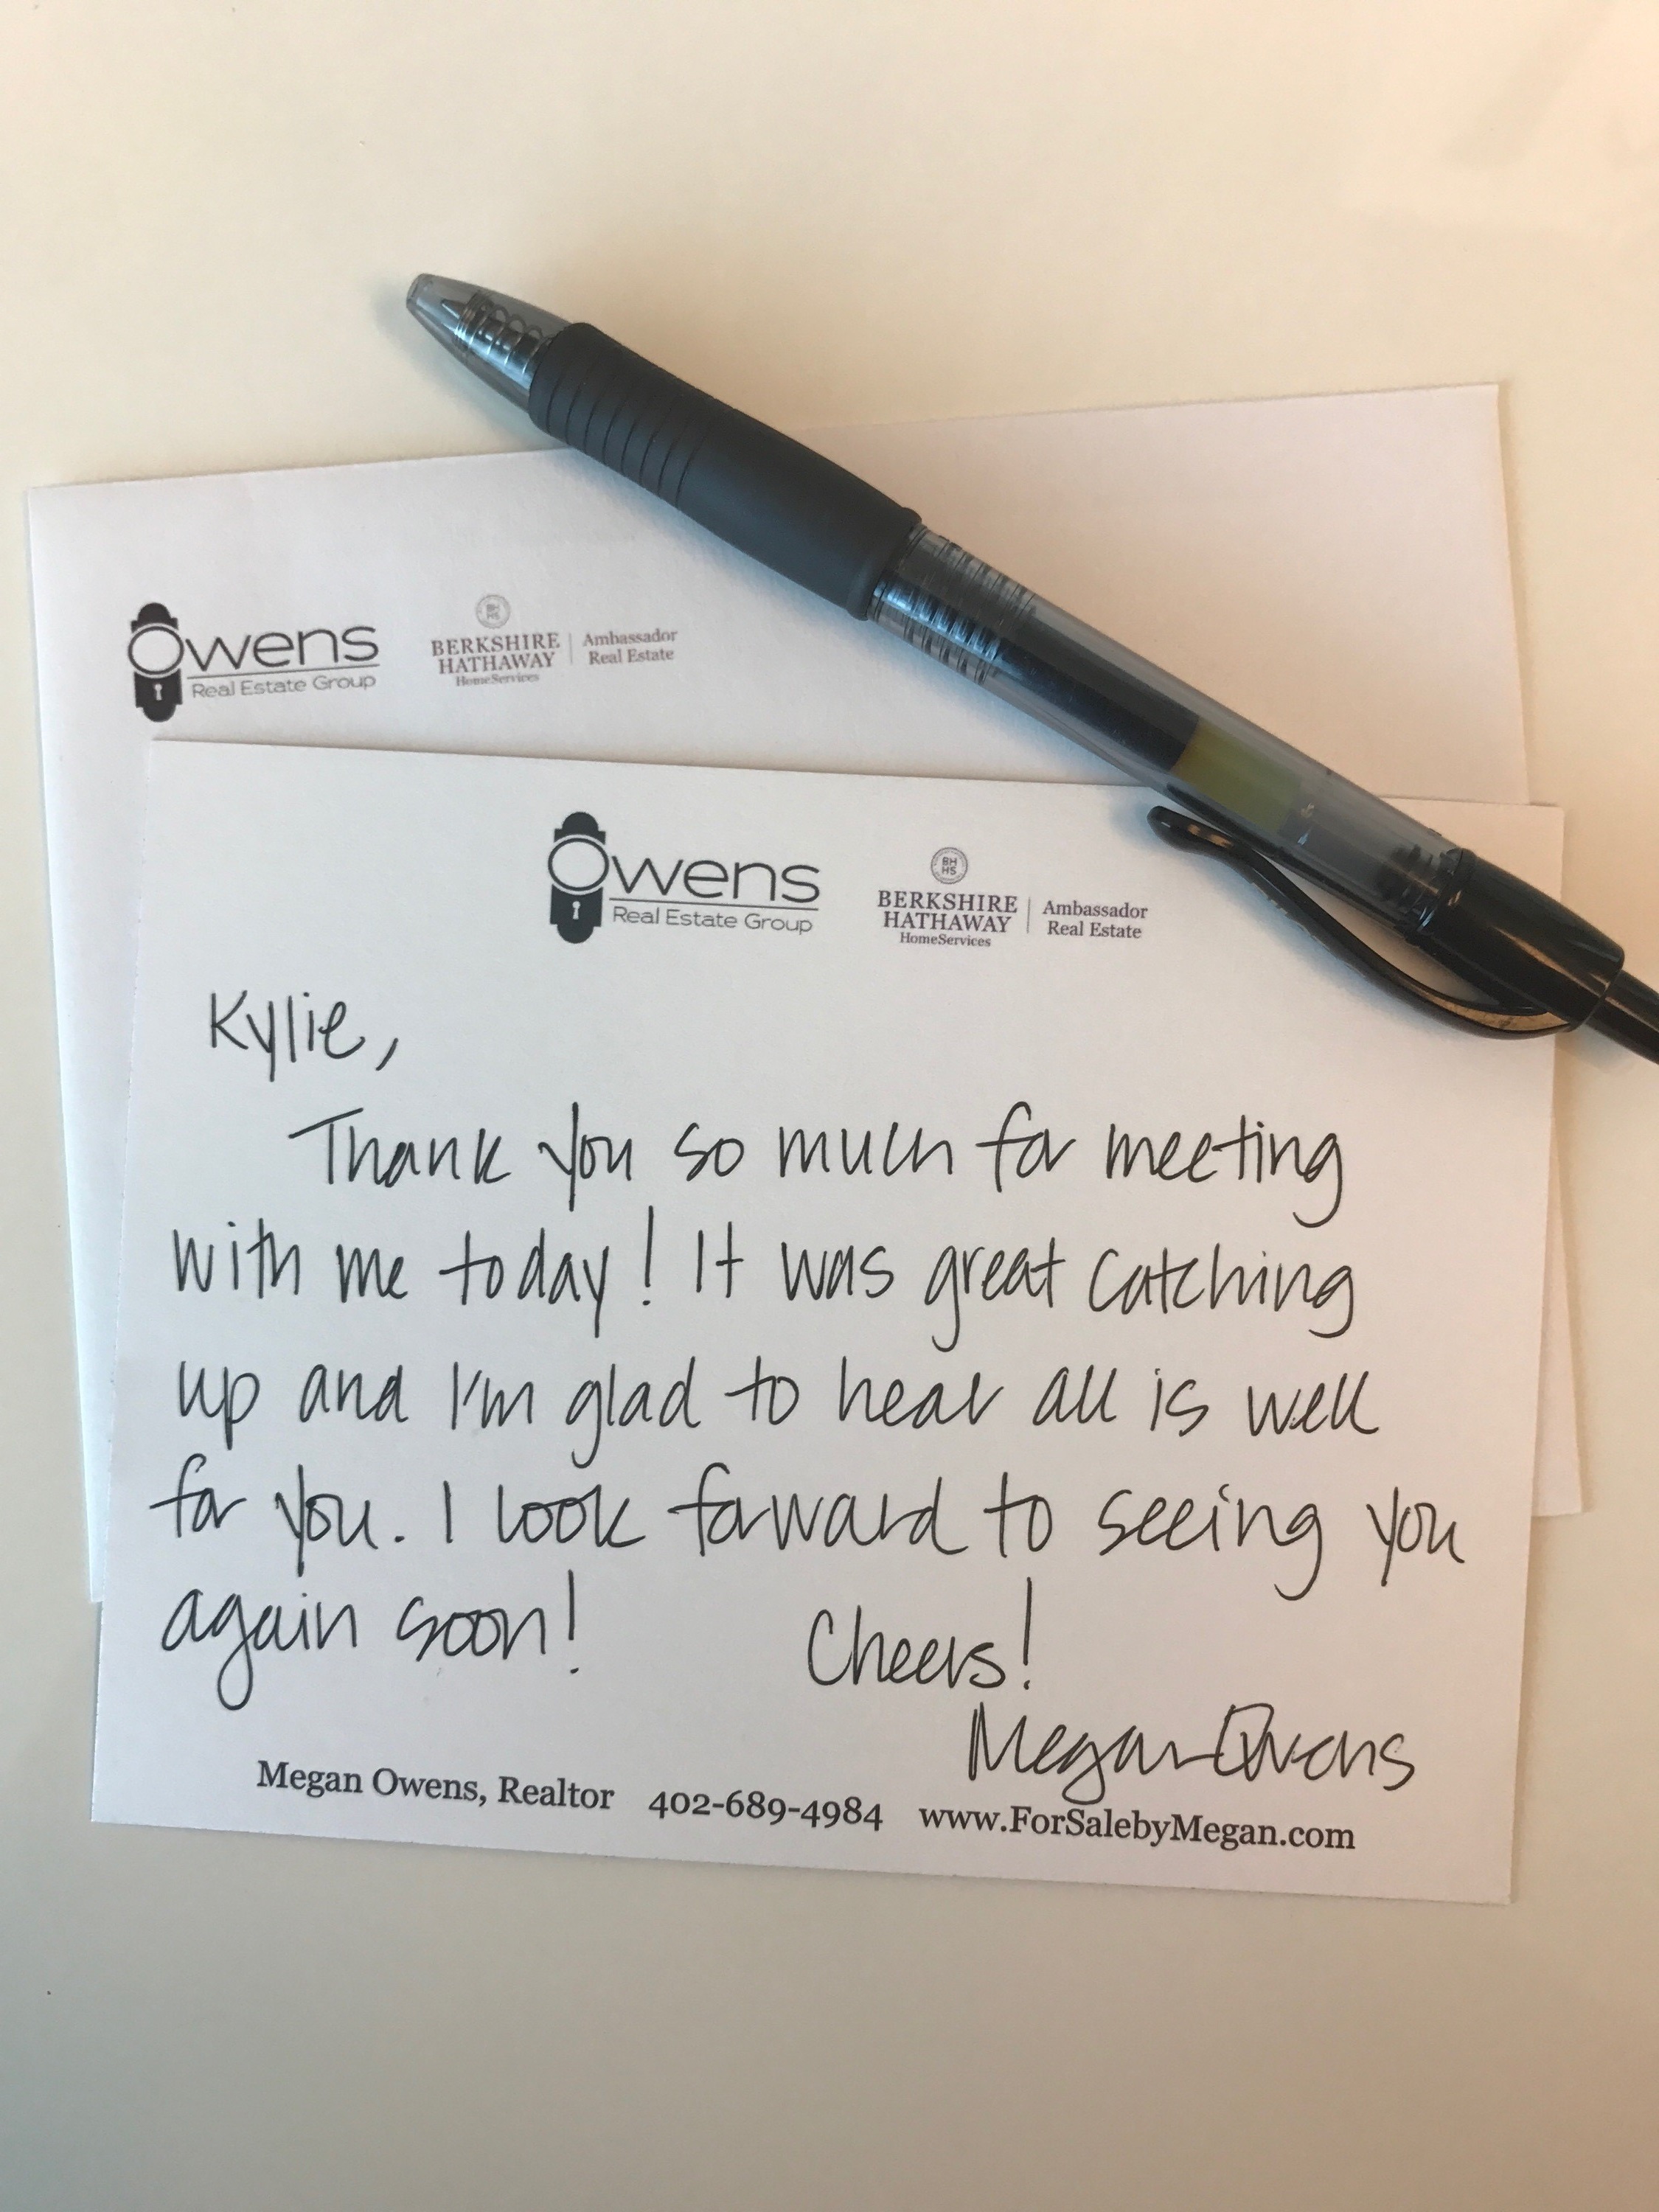 Owens
Real Estate Group
BH
HS
BERKSHIRE
HATHAWAY
HomeServices
Ambassador
Real Estate
Owens
Real Estate Group
BH
HS
BERKSHIRE
HATHAWAY
HomeServices
Ambassador
Real Estate
Kylie,
Thank you so much for meeting
with me today! It was great catching
up and I'm glad to hear all is well
for you. I look forward to seeing you
again soon!
Cheers!
Megan Owens
Megan Owens, Realtor 402-689-4984 www.ForSalebyMegan.com